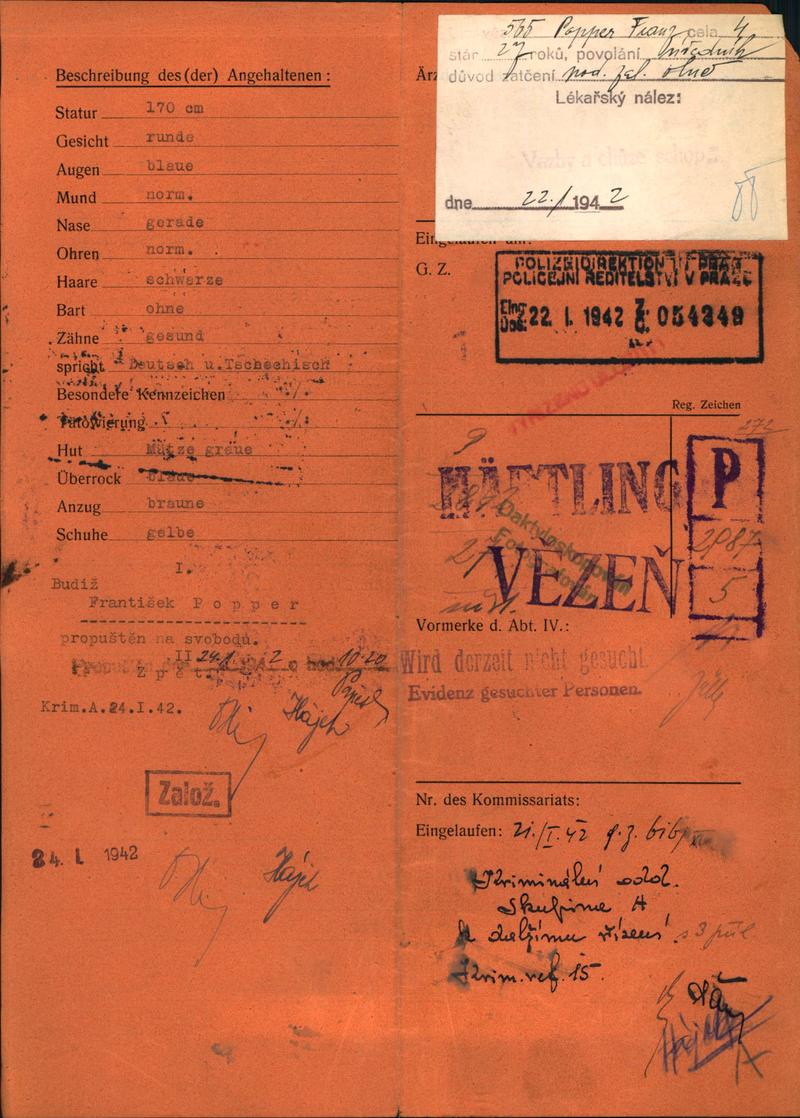 Beschreibung des (der) Angehaltenen:
Statur 170 cm
Gesicht runde
Augen blaue
Mund norm.
Nase gerade
Ohren norm.
Haare schwarze
Bart ohne
Zähne gesund
spricht Deutsch u.Tschechisch
Besondere Kennzeichen ./.
Tätowierung ./.
Hut Mütze graue
Überrock blaue
Anzug braune
Schuhe gelbe
I.
Budiž
František Popper
propuštěn na svobodu.
II 24/I 2 10-20
Zpět
Krim.A.24.I.42.
Hájek
Založ.
24. I. 1942
Hájek
565 Popper Franz cela 4
stár 27 roků, povolání úředník
důvod zatčení pod.
Lékařský nález:
Vazby a chůze schop
dne 22./I 1942
Eingelaufen am:
G. Z.
POLIZEIDIREKTION IN PRAG
POLICEJNÍ ŘEDITELSTVÍ V PRAZE
Eing. Doš. 22. I. 1942 Z. Č. 054349
Reg. Zeichen
272
9
HÄFTLING
P
Daktyloskopován
Fotografován
2987
27
VĚZEŇ
5
Vormerke d. Abt. IV.:
Wird derzeit nicht gesucht.
Evidenz gesuchter Personen.
Nr. des Kommissariats:
Eingelaufen: 21./I.42
Kriminální odd.
Skupina A
k dalšímu řízení. s 3 příl.
Krim.ref. 15.
Hájek